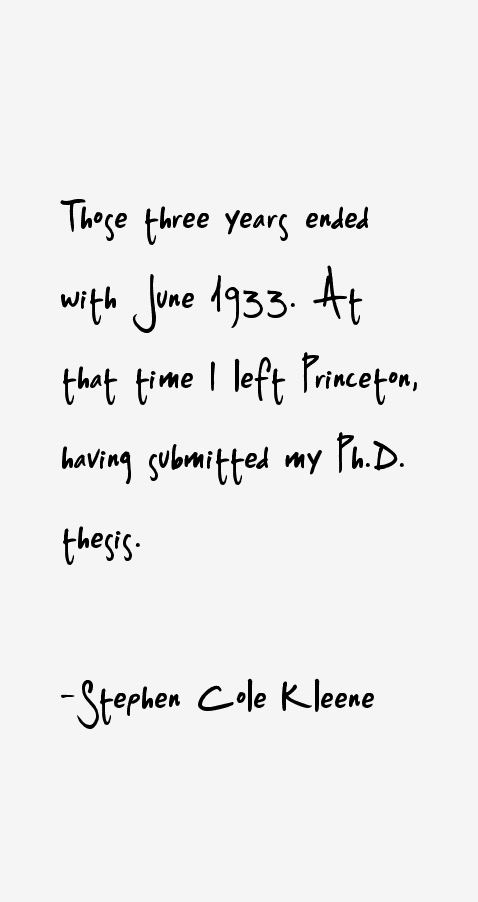 Those three years ended
with June 1933. At
that time I left Princeton,
having submitted my Ph.D.
thesis.
-Stephen Cole Kleene